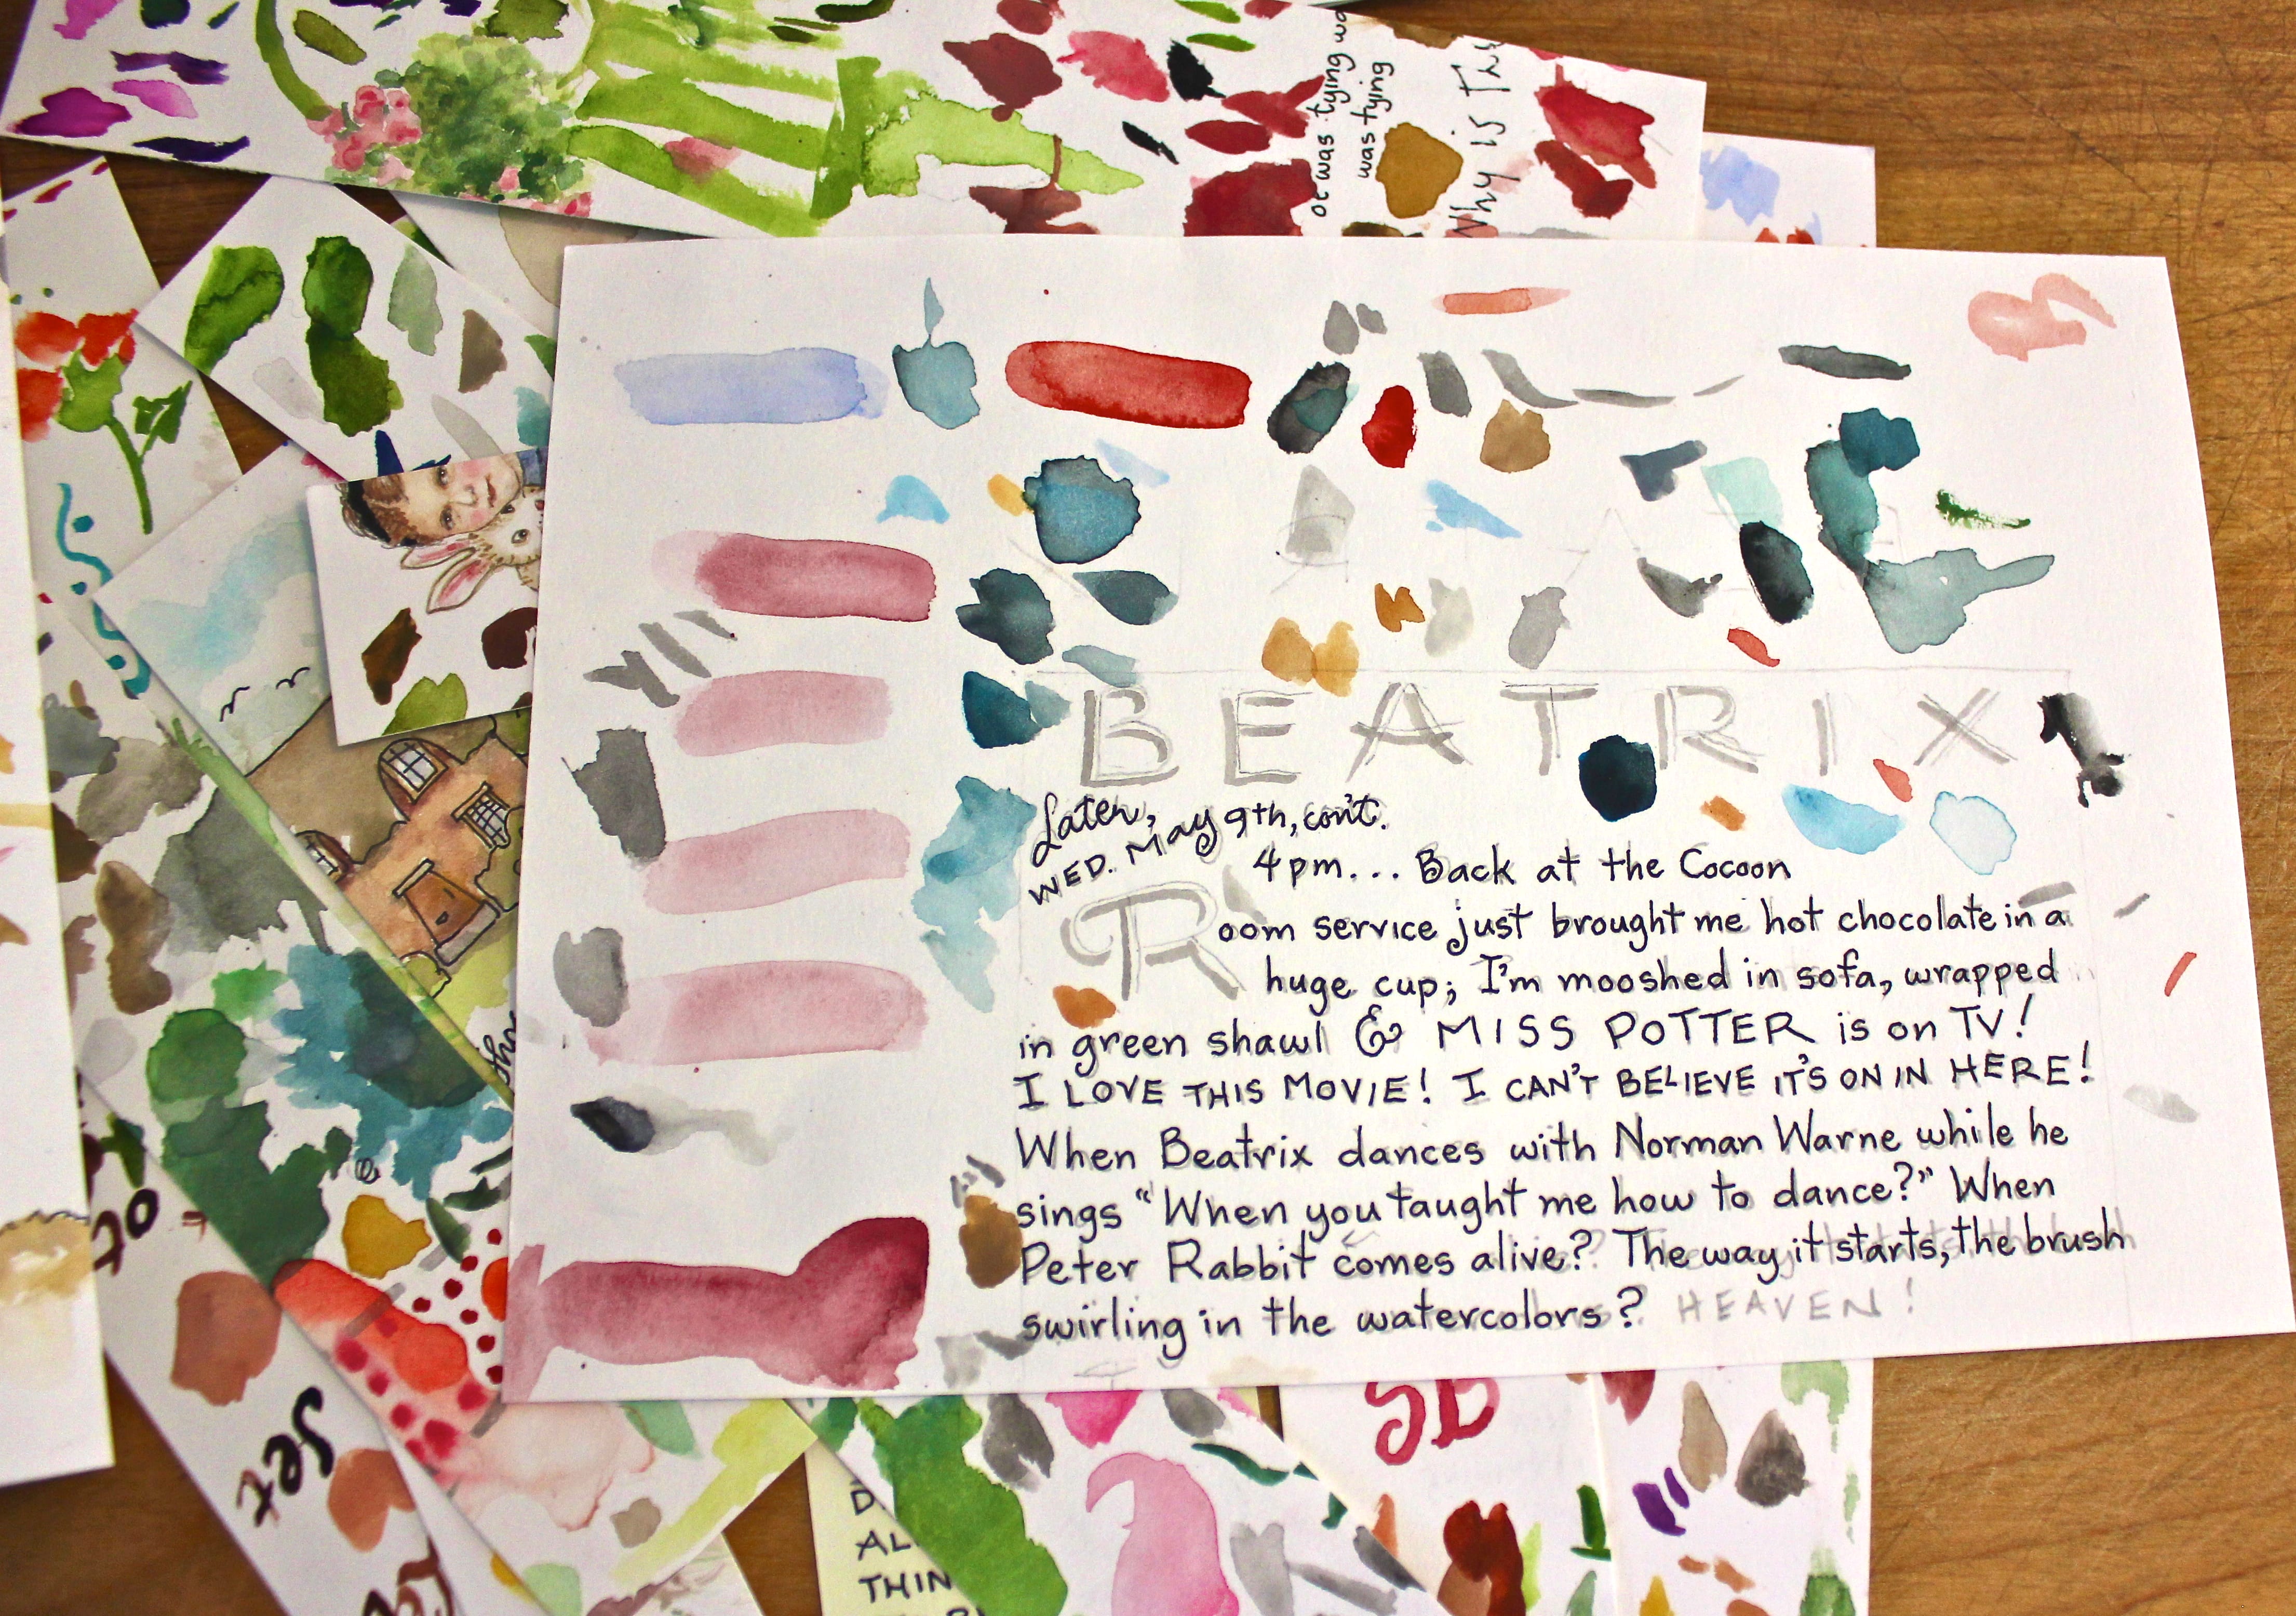 oe was tying wa
was tying
Why is Thi
BEATRIX
Later,
WED. May 9th, con't.
4pm... Back at the Cocoon
Room service just brought me hot chocolate in a
huge cup; I'm mooshed in sofa, wrapped
in green shawl & MISS POTTER is on TV!
I LOVE THIS MOVIE! I CAN'T BELIEVE IT'S ON IN HERE!
When Beatrix dances with Norman Warne while he
sings "When you taught me how to dance?" When
Peter Rabbit comes alive? The way it starts, the brush
swirling in the watercolors? HEAVEN!
Set
SB
D
AL
THIN